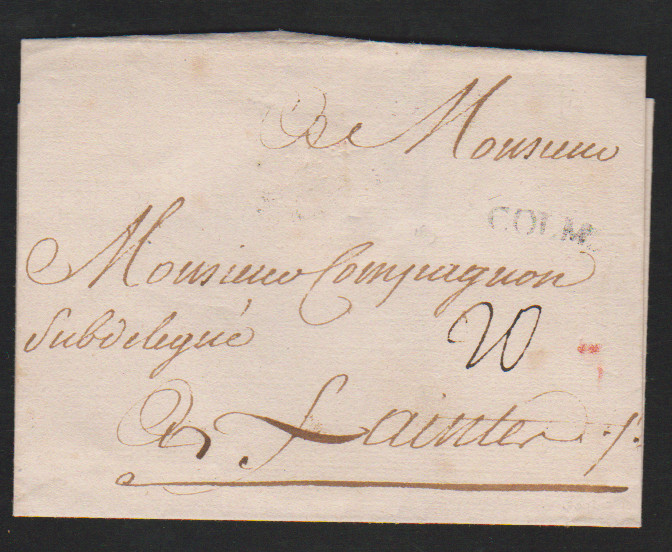 A Monsieur
COLM
Monsieur Compagnon
Subdelegué
20
A Saintes